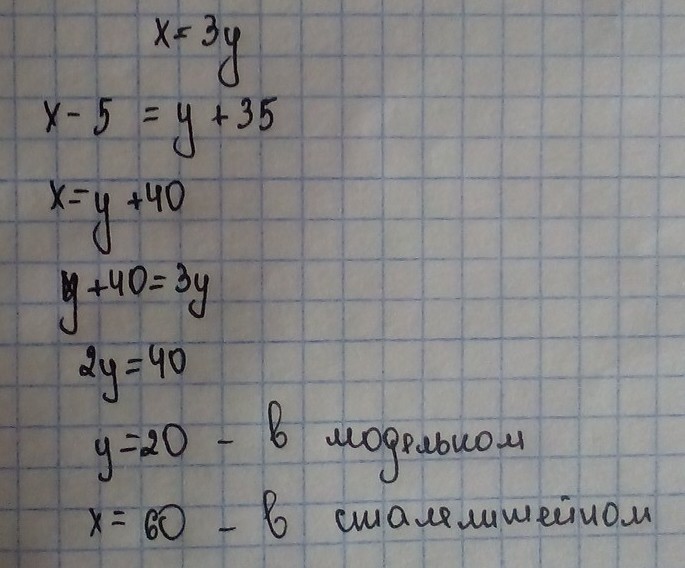 x = 3y
x - 5 = y + 35
x = y + 40
y + 40 = 3y
2y = 40
y = 20 - в модельном
x = 60 - в сталелитейном